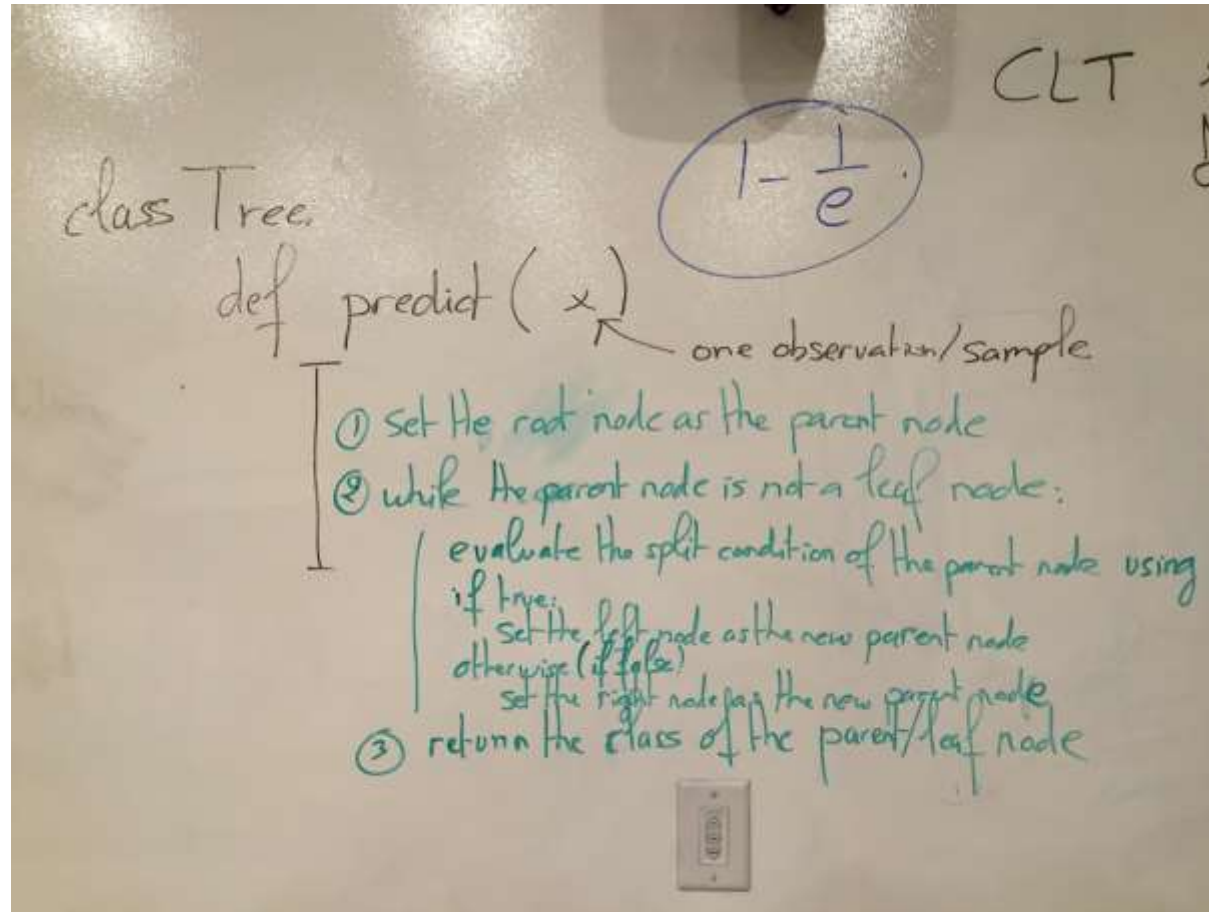 CLT
1 - 1/e.
class Tree:
def predict ( x )
one observation/sample
① set the root node as the parent node
② while the parent node is not a leaf node:
evaluate the split condition of the parent node using
if true:
set the left node as the new parent node
otherwise (if false)
set the right node as the new parent node
③ return the class of the parent/leaf node